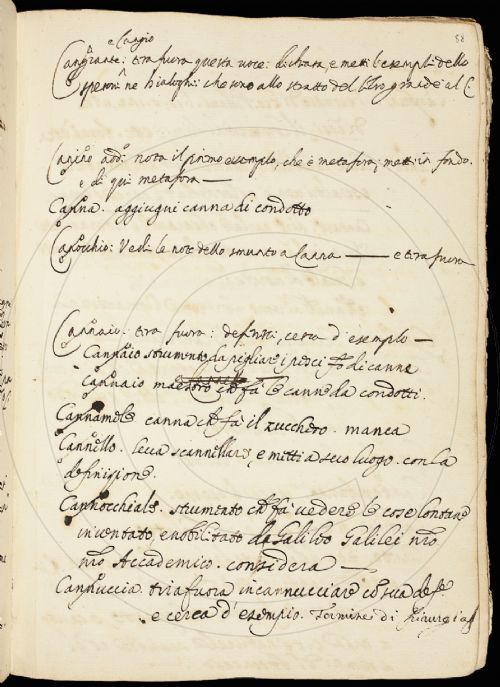 58
e Cangio
Cangiante: tira fuora questa voce: dichiara, e metti l'esempli dello
Speroni ne Dialoghi: che sono allo stratto del libro grande al C:
Cagino add: nota il primo esemplo, che è metafora; metti in fondo.
e di qui metafora —
Canna. aggiugni canna di condotto
Canocchio: Vedi le note dello smunto a Canna — e tira fuora
Cannaio. tira fuora: definisci, cerca d'esemplo —
Cannaio strumento da pigliare i pesci fto di canne
Cannaio maestro che fa le canne da condotti.
Cannamele canna che fa il zucchero. manca
Cannello. leva scannellare, e metti a suo luogo. con la
definizione.
Cannocchiale. strumento che fa vedere le cose lontane
inventato, e nobilitato da Galileo Galilei nro
nro Accademico. considera —
Cannuccia tira fuora incannucciare co sua defe
e cerca d'esempio. Termine di chirurgia